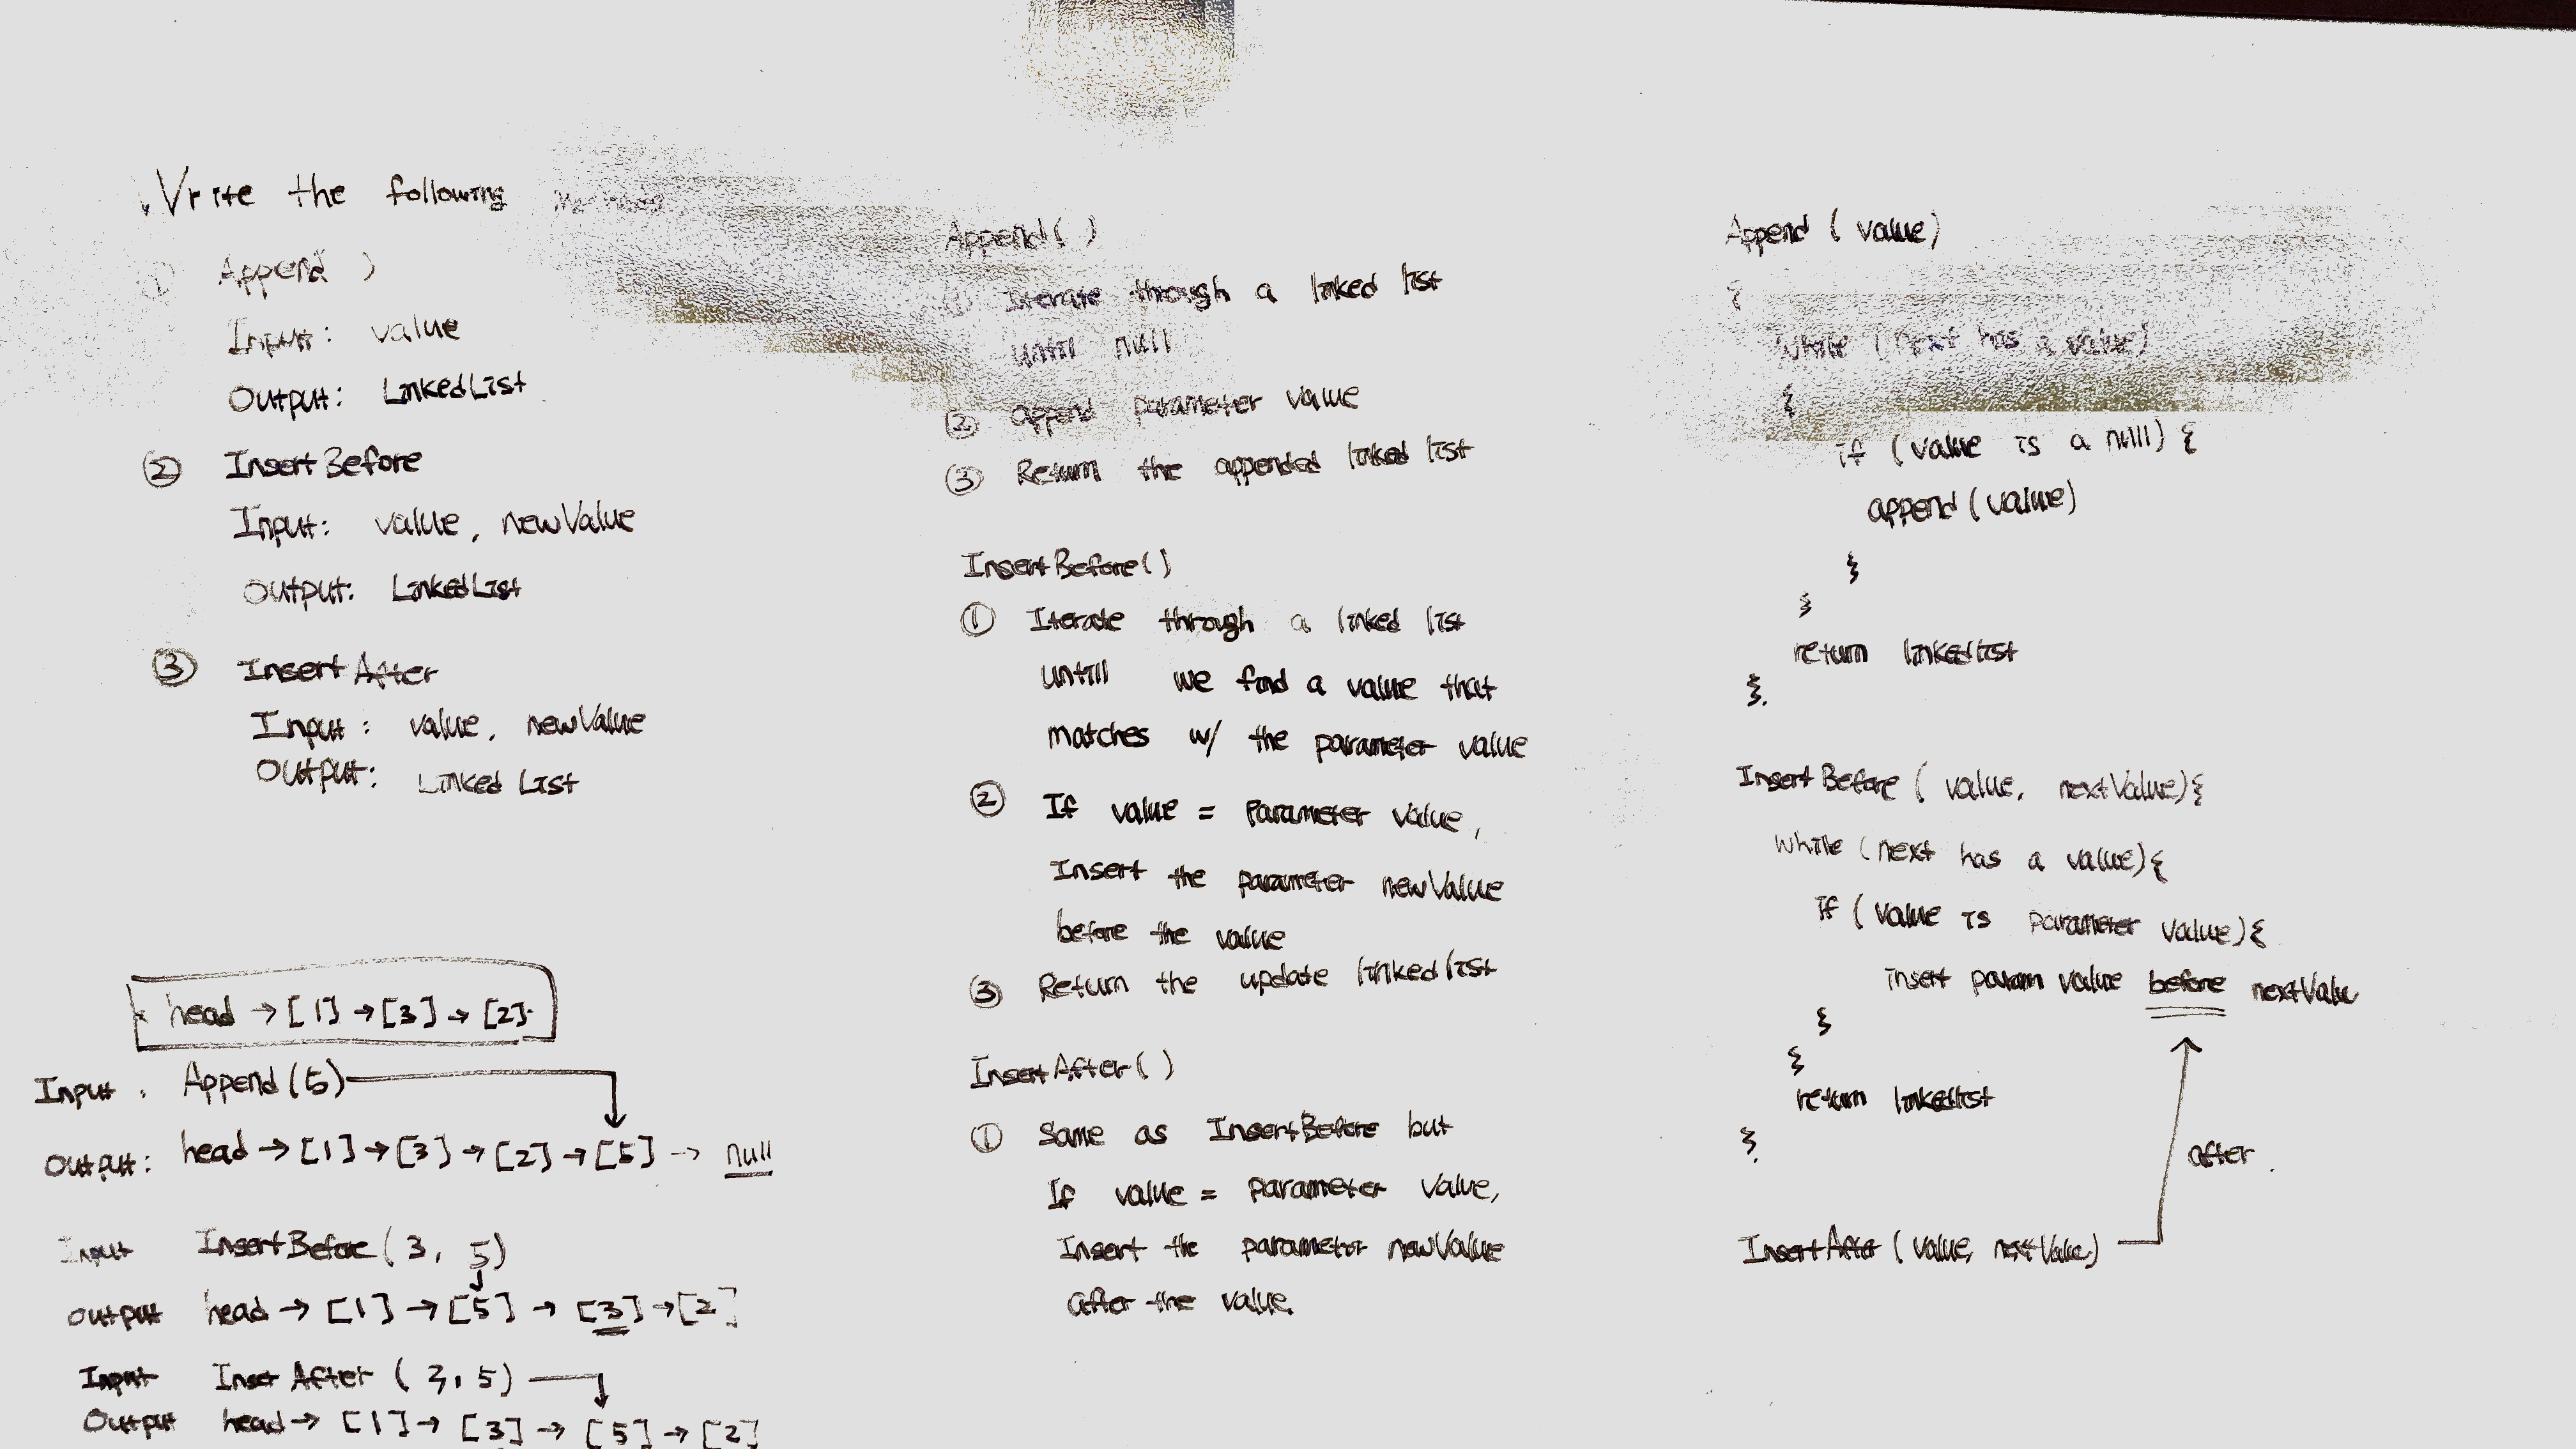 Write the following
① Append )
Input: value
Output: LinkedList
② InsertBefore
Input: value, newValue
Output: LinkedList
③ InsertAfter
Input: value, newValue
Output: Linked List
head → [1] → [3] → [2]
Input: Append(5)
Output: head → [1] → [3] → [2] → [5] → null
Input InsertBefore(3, 5)
Output head → [1] → [5] → [3] → [2]
Input Inser After (3, 5)
Output head → [1] → [3] → [5] → [2]
Append( )
Iterate through a linked list
untill null
② append parameter value
③ Return the appended linked list
InsertBefore()
① Iterate through a linked list
untill we find a value that
matches w/ the parameter value
② If value = parameter value,
Insert the parameter newValue
before the value
③ Return the update linked list
InsertAfter( )
① Same as InsertBefore but
If value = parameter value,
Insert the parameter newValue
after the value.
Append ( value)
{
while (next has a value)
{
if (value is a null) {
append (value)
}
}
return linkedlist
}.
InsertBefore ( value, nextValue){
while (next has a value){
if (value is parameter value){
insert param value before nextValue
}
}
return linkedlist
}.
after.
InsertAfter (value, nextValue)